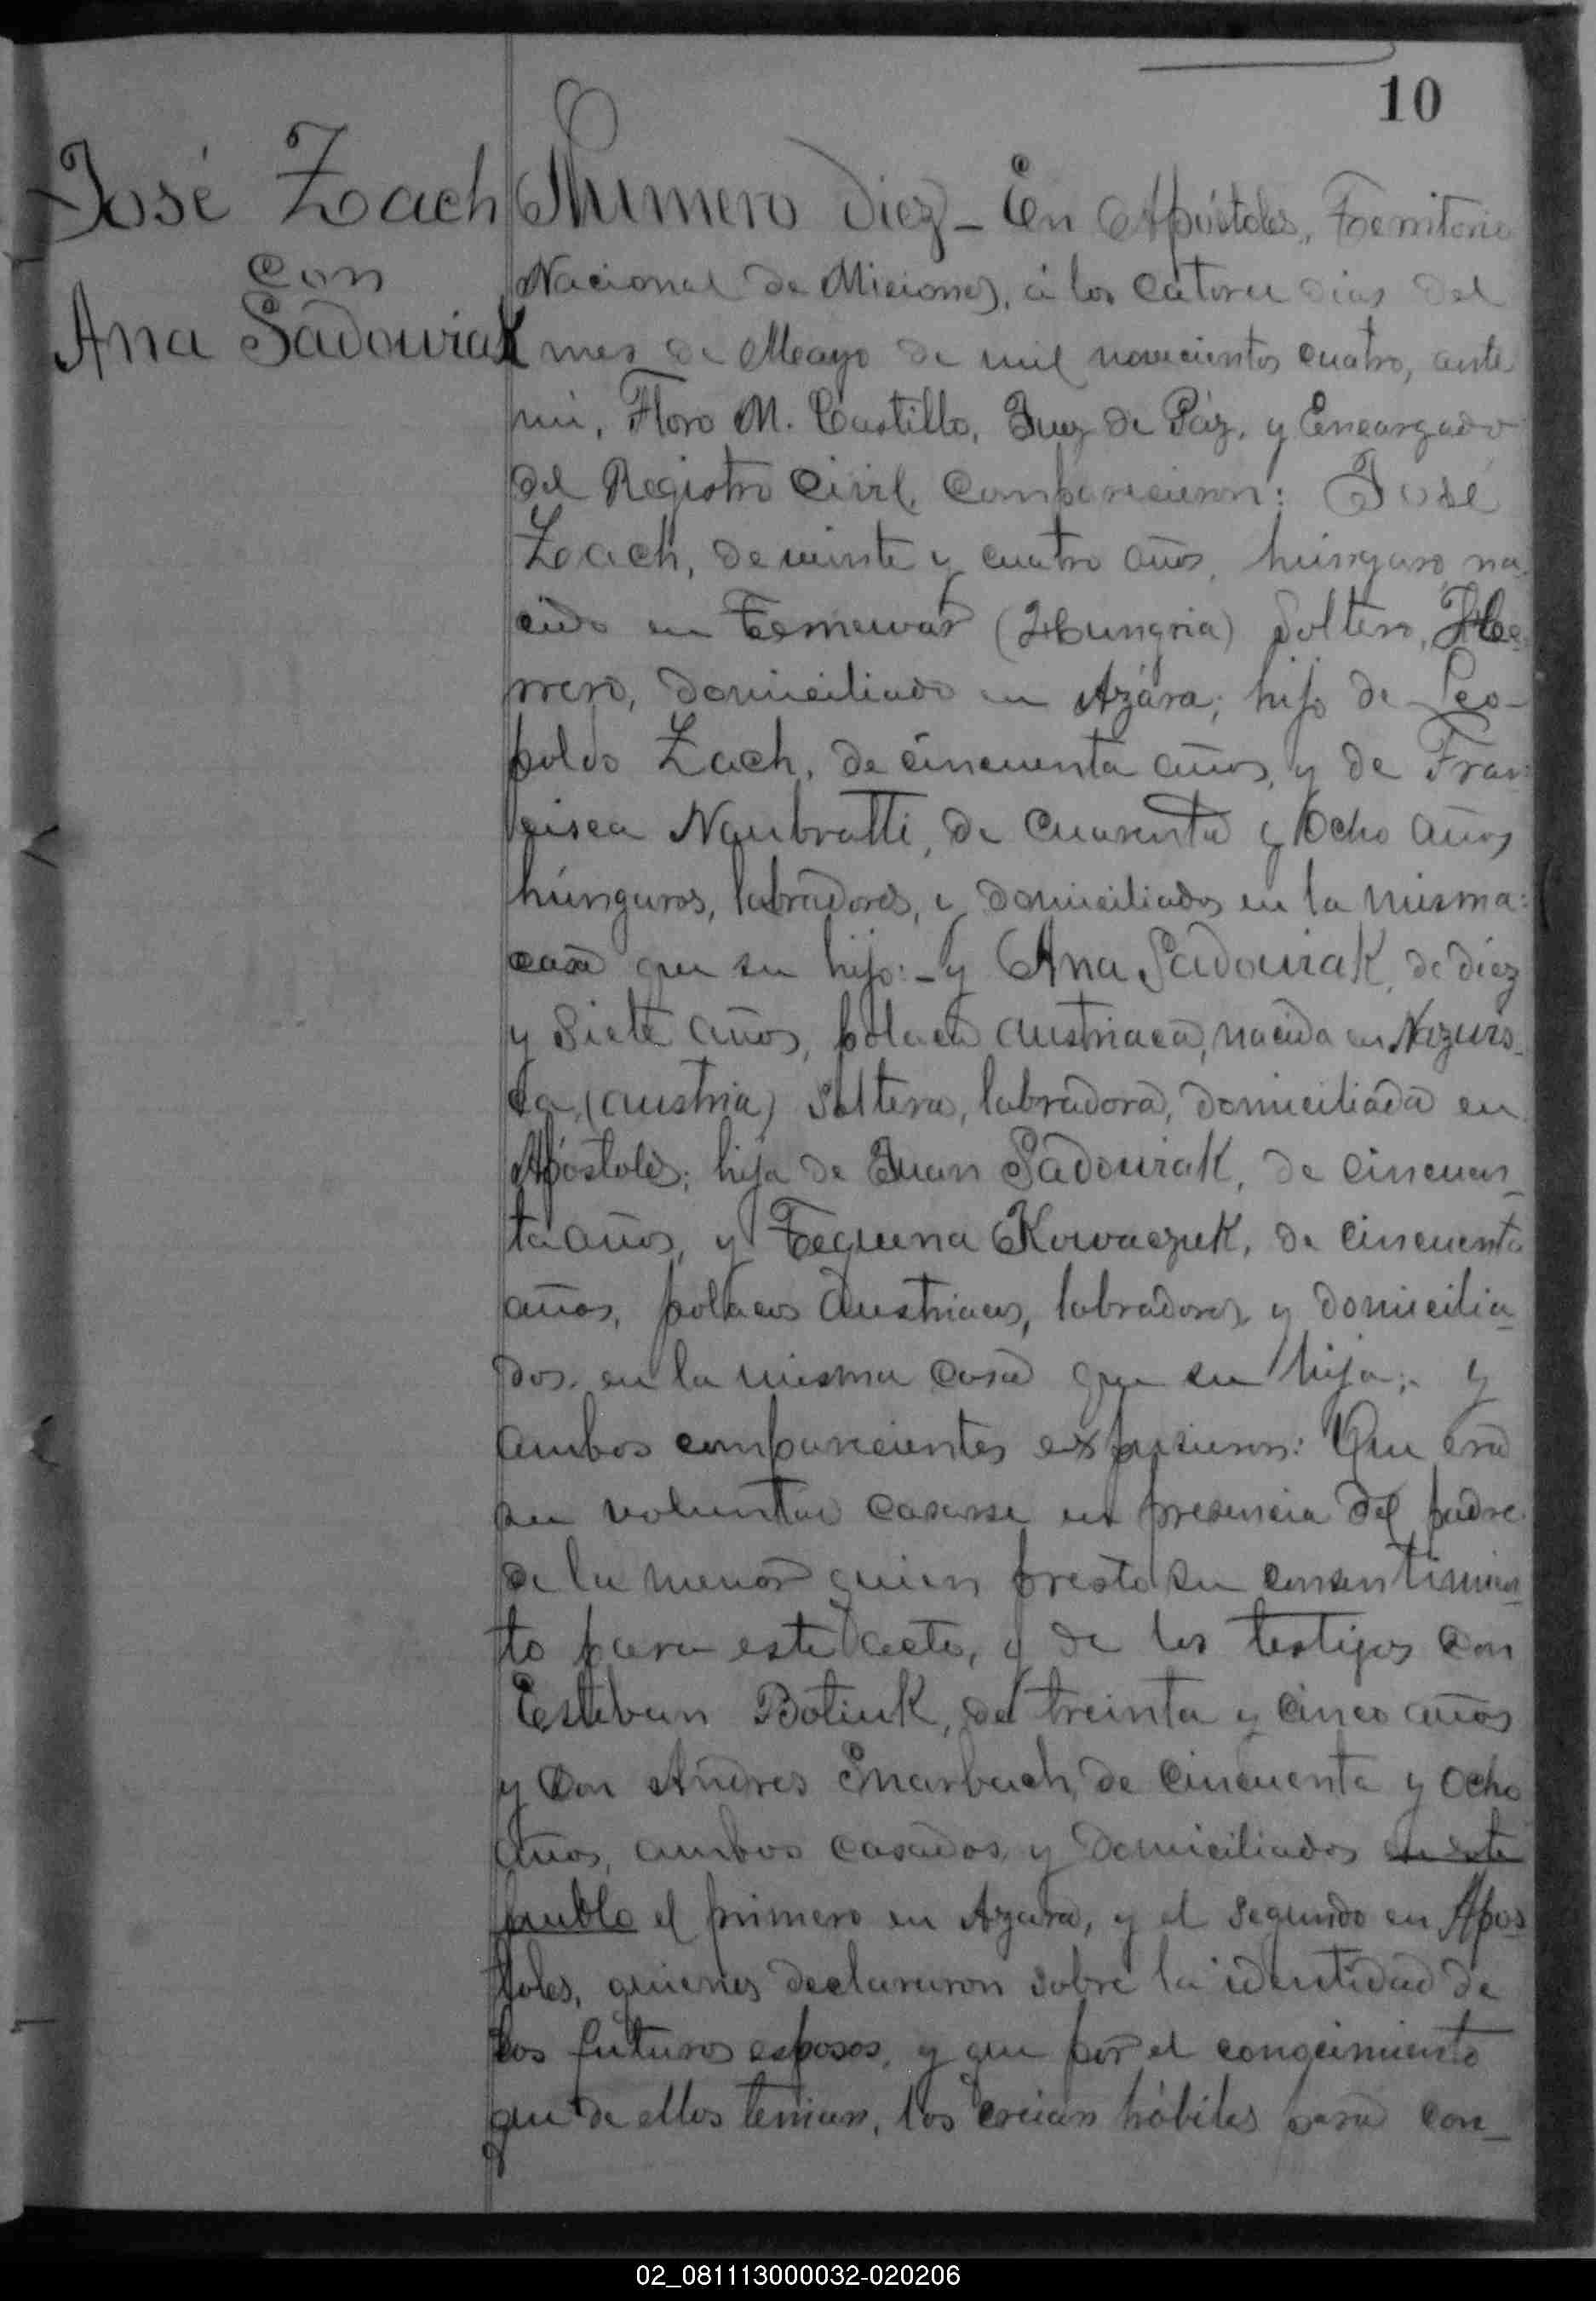 10
José Zach
con
Ana Sadowiak
Número Diez - En Apóstoles, Territorio
Nacional de Misiones, á los catorce dias del
mes de Mayo de mil novecientos cuatro, ante
mi, Floro M. Castillo, Juez de Páz, y Encargado
del Registro Civil, comparecieron: José
Zach, de veinte y cuatro años, húngaro, na-
cido en Temewar (Hungria) Soltero, He-
rrero, domiciliado en Azára; hijo de Leo-
poldo Zach, de cincuenta años, y de Fran
cisca Naubratti, de cuarenta y ocho años
húngaros, labradores, y domiciliados en la misma
casa que su hijo:- y Ana Sadowiak, de diez
y siete años, polaca austriaca, nacida en
(austria) Soltera, labradora, domiciliada en
Apóstoles; hija de Juan Sadowiak, de cincuen-
ta años, y Tequena Kowaczuk, de cincuenta
años, polacos austriacos, labradores y domicilia-
dos en la misma casa que su hija; y
ambos comparecientes expusieron: Que era
su voluntad casarse en presencia del padre
de la menor quien prestó su consentimien-
to para este acto, y de los testigos Don
Esteban Botiuk, de treinta y cinco años
y Don Andres Enarbach, de cincuenta y ocho
años, ambos casados y domiciliados en este
pueblo el primero en Azara, y el segundo en Após-
toles, quienes declararon sobre la identidad de
los futuros esposos, y que por el conocimiento
que de ellos tenian, los creian hábiles para con-
02_081113000032-020206